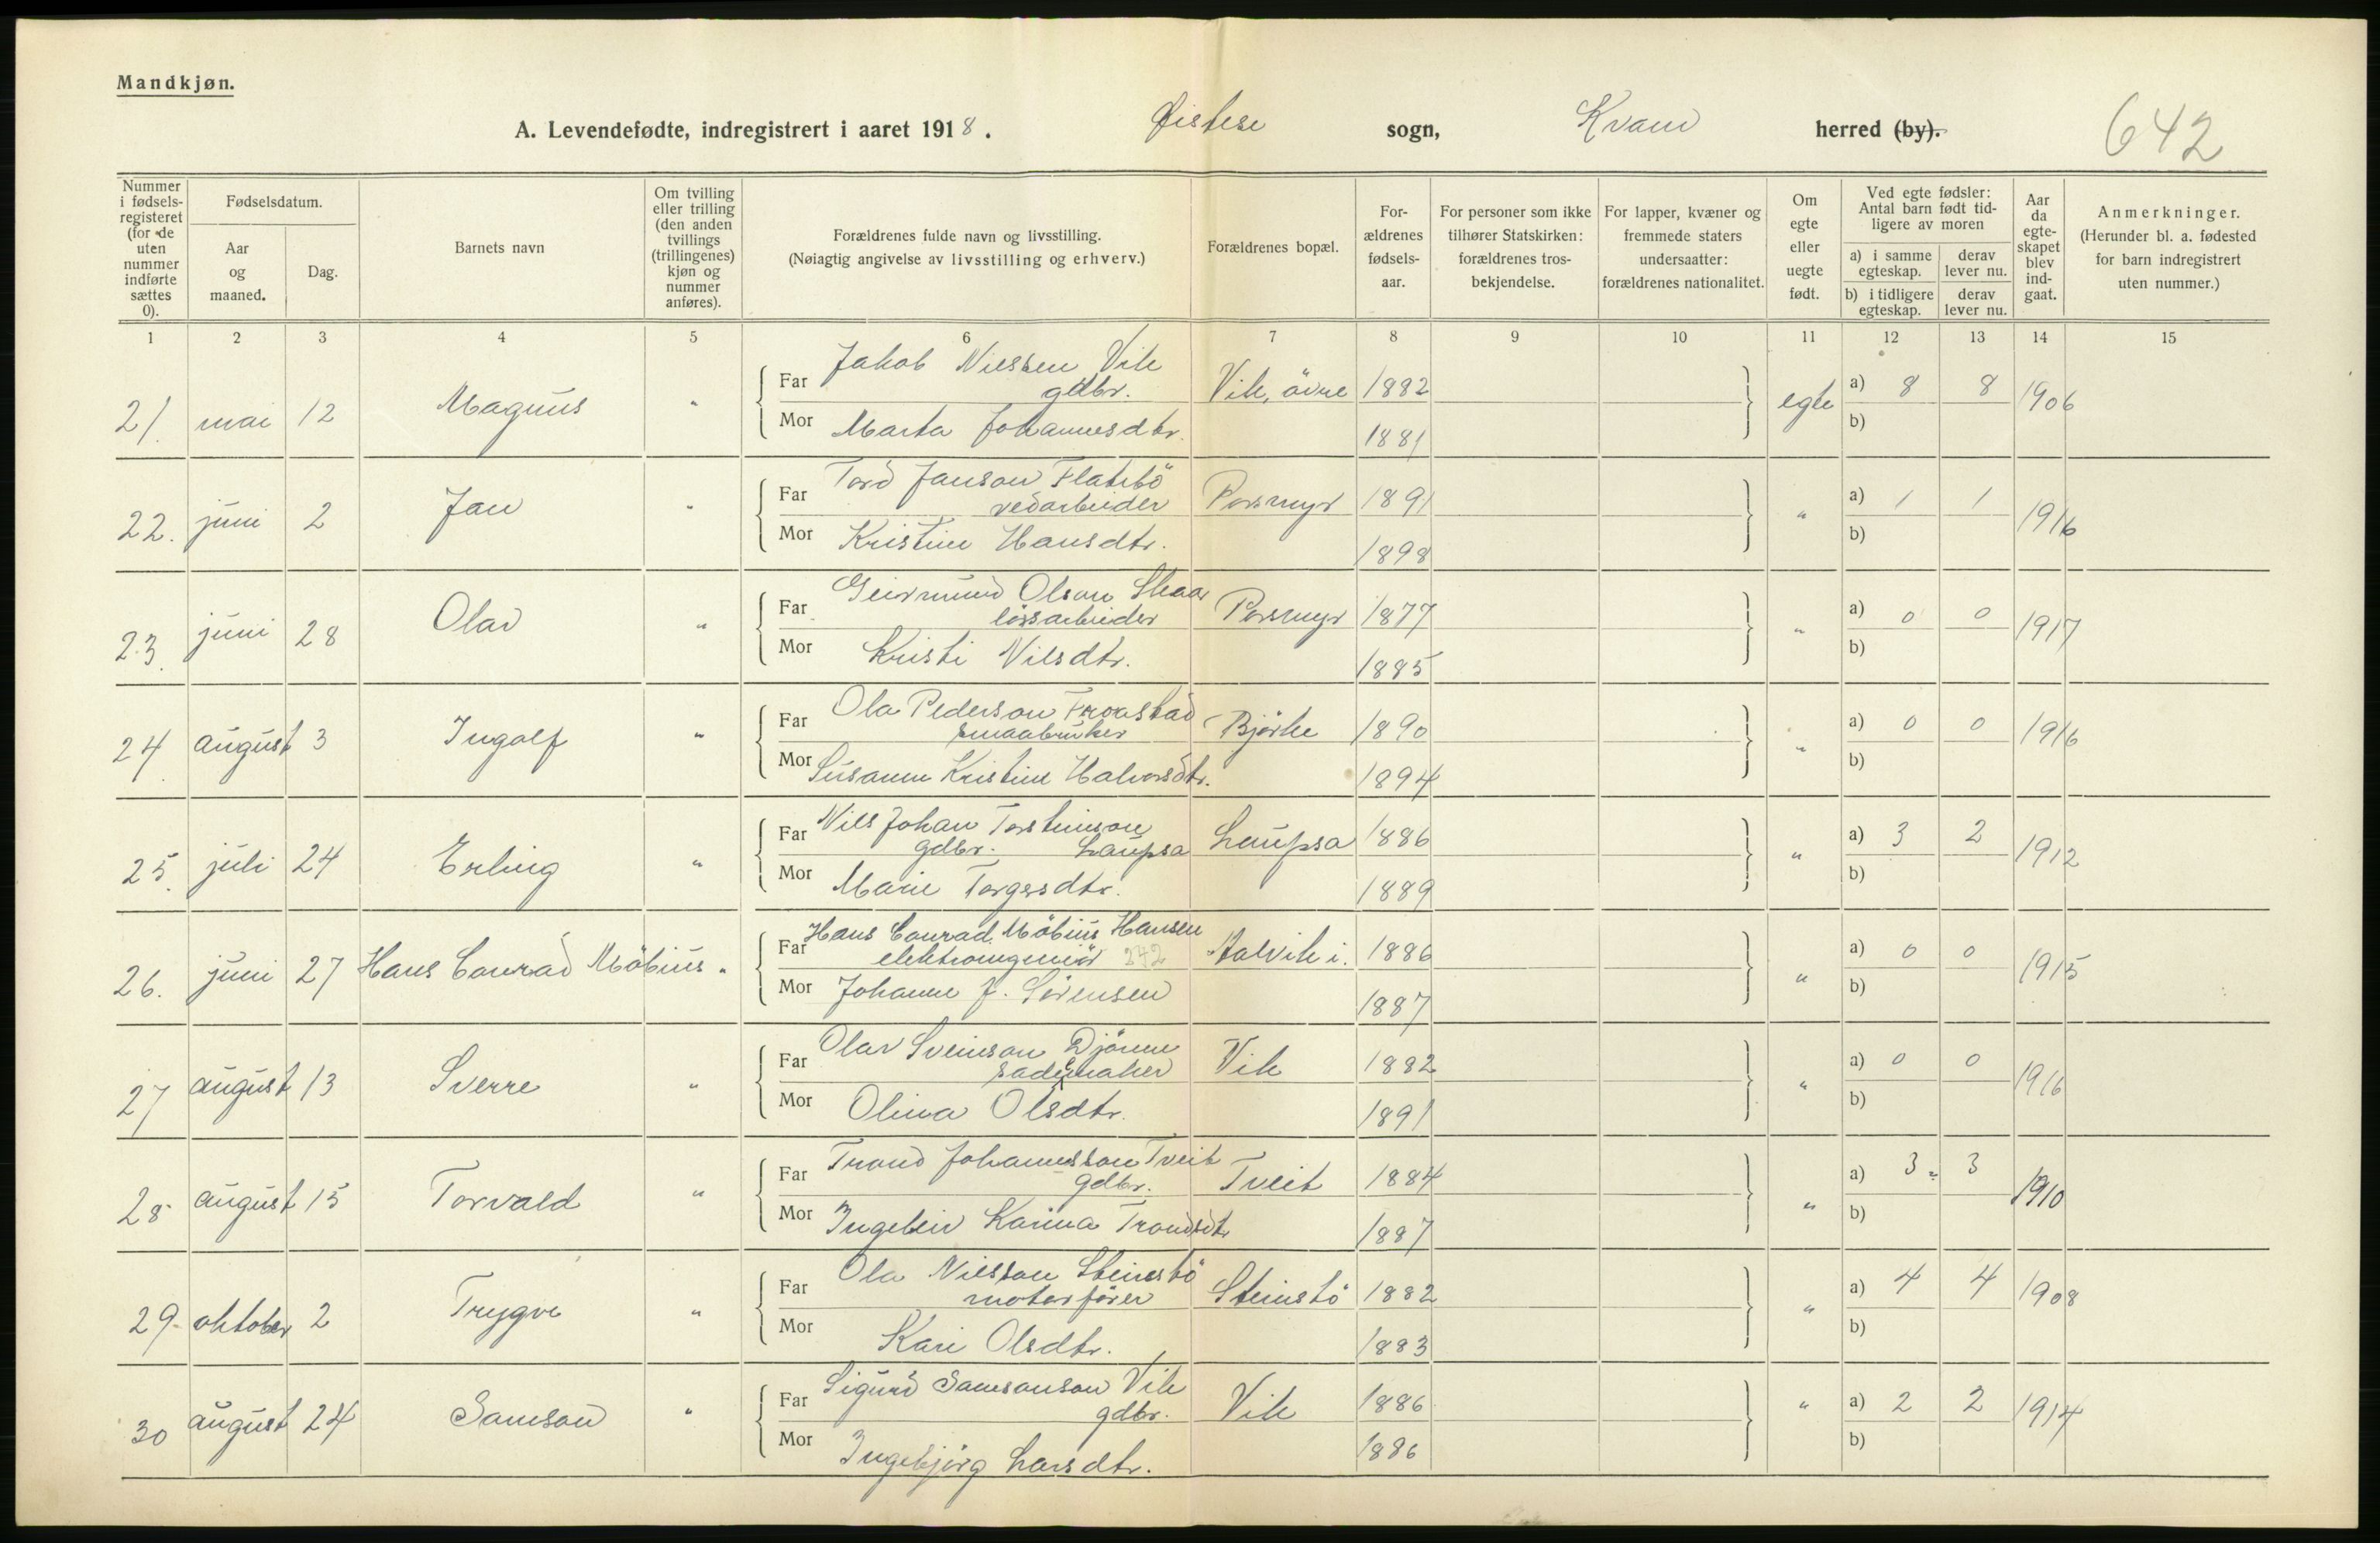 Mandkjøn.
A. Levendefødte, indregistrert i aaret 1918. Øistese sogn, Kvam herred (by). 642
Nummer i fødsels-registeret (for de uten nummer indførte sættes 0).
Fødselsdatum.
Aar og maaned.
Dag.
Barnets navn
Om tvilling eller trilling (den anden tvillings (trillingenes) kjøn og nummer anføres).
Forældrenes fulde navn og livsstilling.
(Nøiagtig angivelse av livsstilling og erhverv.)
Forældrenes bopæl.
For-ældrenes fødsels-aar.
For personer som ikke tilhører Statskirken: forældrenes tros-bekjendelse.
For lapper, kvæner og fremmede staters undersaatter: forældrenes nationalitet.
Om egte eller uegte født.
Ved egte fødsler: Antal barn født tid-ligere av moren
a) i samme egteskap.
derav lever nu.
b) i tidligere egteskap.
derav lever nu.
Aar da egte-skapet blev ind-gaat.
Anmerkninger.
(Herunder bl. a. fødested for barn indregistrert uten nummer.)
1 2 3 4 5 6 7 8 9 10 11 12 13 14 15
Far Jakob Nielsen Vik
gdbr. Vik, övre 1882 a) 8 8
21. mai 12 Magnus " egte 1906
Mor Marta Johannesdtr. 1881 b)
Far Tord Janson Flatebö
vedarbeider Porsmyr 1891 a) 1 1
22. juni 2 Jan " " 1916
Mor Kristine Hansdtr. 1898 b)
Far Geirmund Olson Skaar
lössarbeider Porsmyr 1877 a) 0 0
23. juni 28 Olav " " 1917
Mor Kristi Nilsdtr. 1885 b)
Far Ola Pederson Froastad
smaabruker Björke 1890 a) 0 0
24 august 3 Ingolf " " 1916
Mor Susanne Kristine Halvorsdtr. 1894 b)
Far Nils Johan Torsteinson
gdbr. Laupsa Laupsa 1886 a) 3 2
25. juli 24 Erling " " 1912
Mor Marie Torgersdtr. 1889 b)
Far Hans Conrad Möbius Hansen
elektroingeniör 272 Aalvik i. 1886 a) 0 0
26. juni 27 Hans Conrad Möbius " " 1915
Mor Johanne J. Sörensen 1887 b)
Far Olav Sveinson Djönne
sadelmaker Vik 1882 a) 0 0
27 august 13 Sverre " " 1916
Mor Olina Olsdtr. 1891 b)
Far Trond Johannesson Tveit
gdbr. Tveit 1884 a) 3 3
28 august 15 Torvald " " 1910
Mor Ingebeiv Karina Trondsdtr 1887 b)
Far Ola Nilsson Steinstö
motorförer Steinstö 1882 a) 4 4
29. oktober 2 Trygve " " 1908
Mor Kari Olsdtr. 1883 b)
Far Sigurd Samsonson Vik
gdbr. Vik 1886 a) 2 2
30 august 24 Samson " " 1914
Mor Ingebjörg Larsdtr. 1886 b)